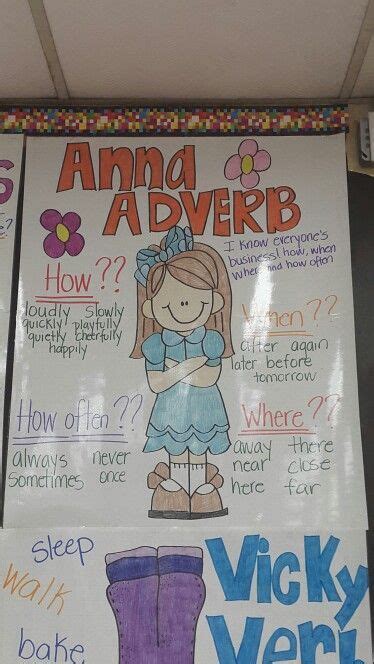 Anna
ADVERB
I know everyone's
business! how, when
where and how often
How??
loudly slowly
quickly playfully
quietly cheerfully
happily
When??
after again
later before
tomorrow
How often??
always never
sometimes once
Where??
away there
near close
here far
sleep
walk
bake
Vicky
Verb